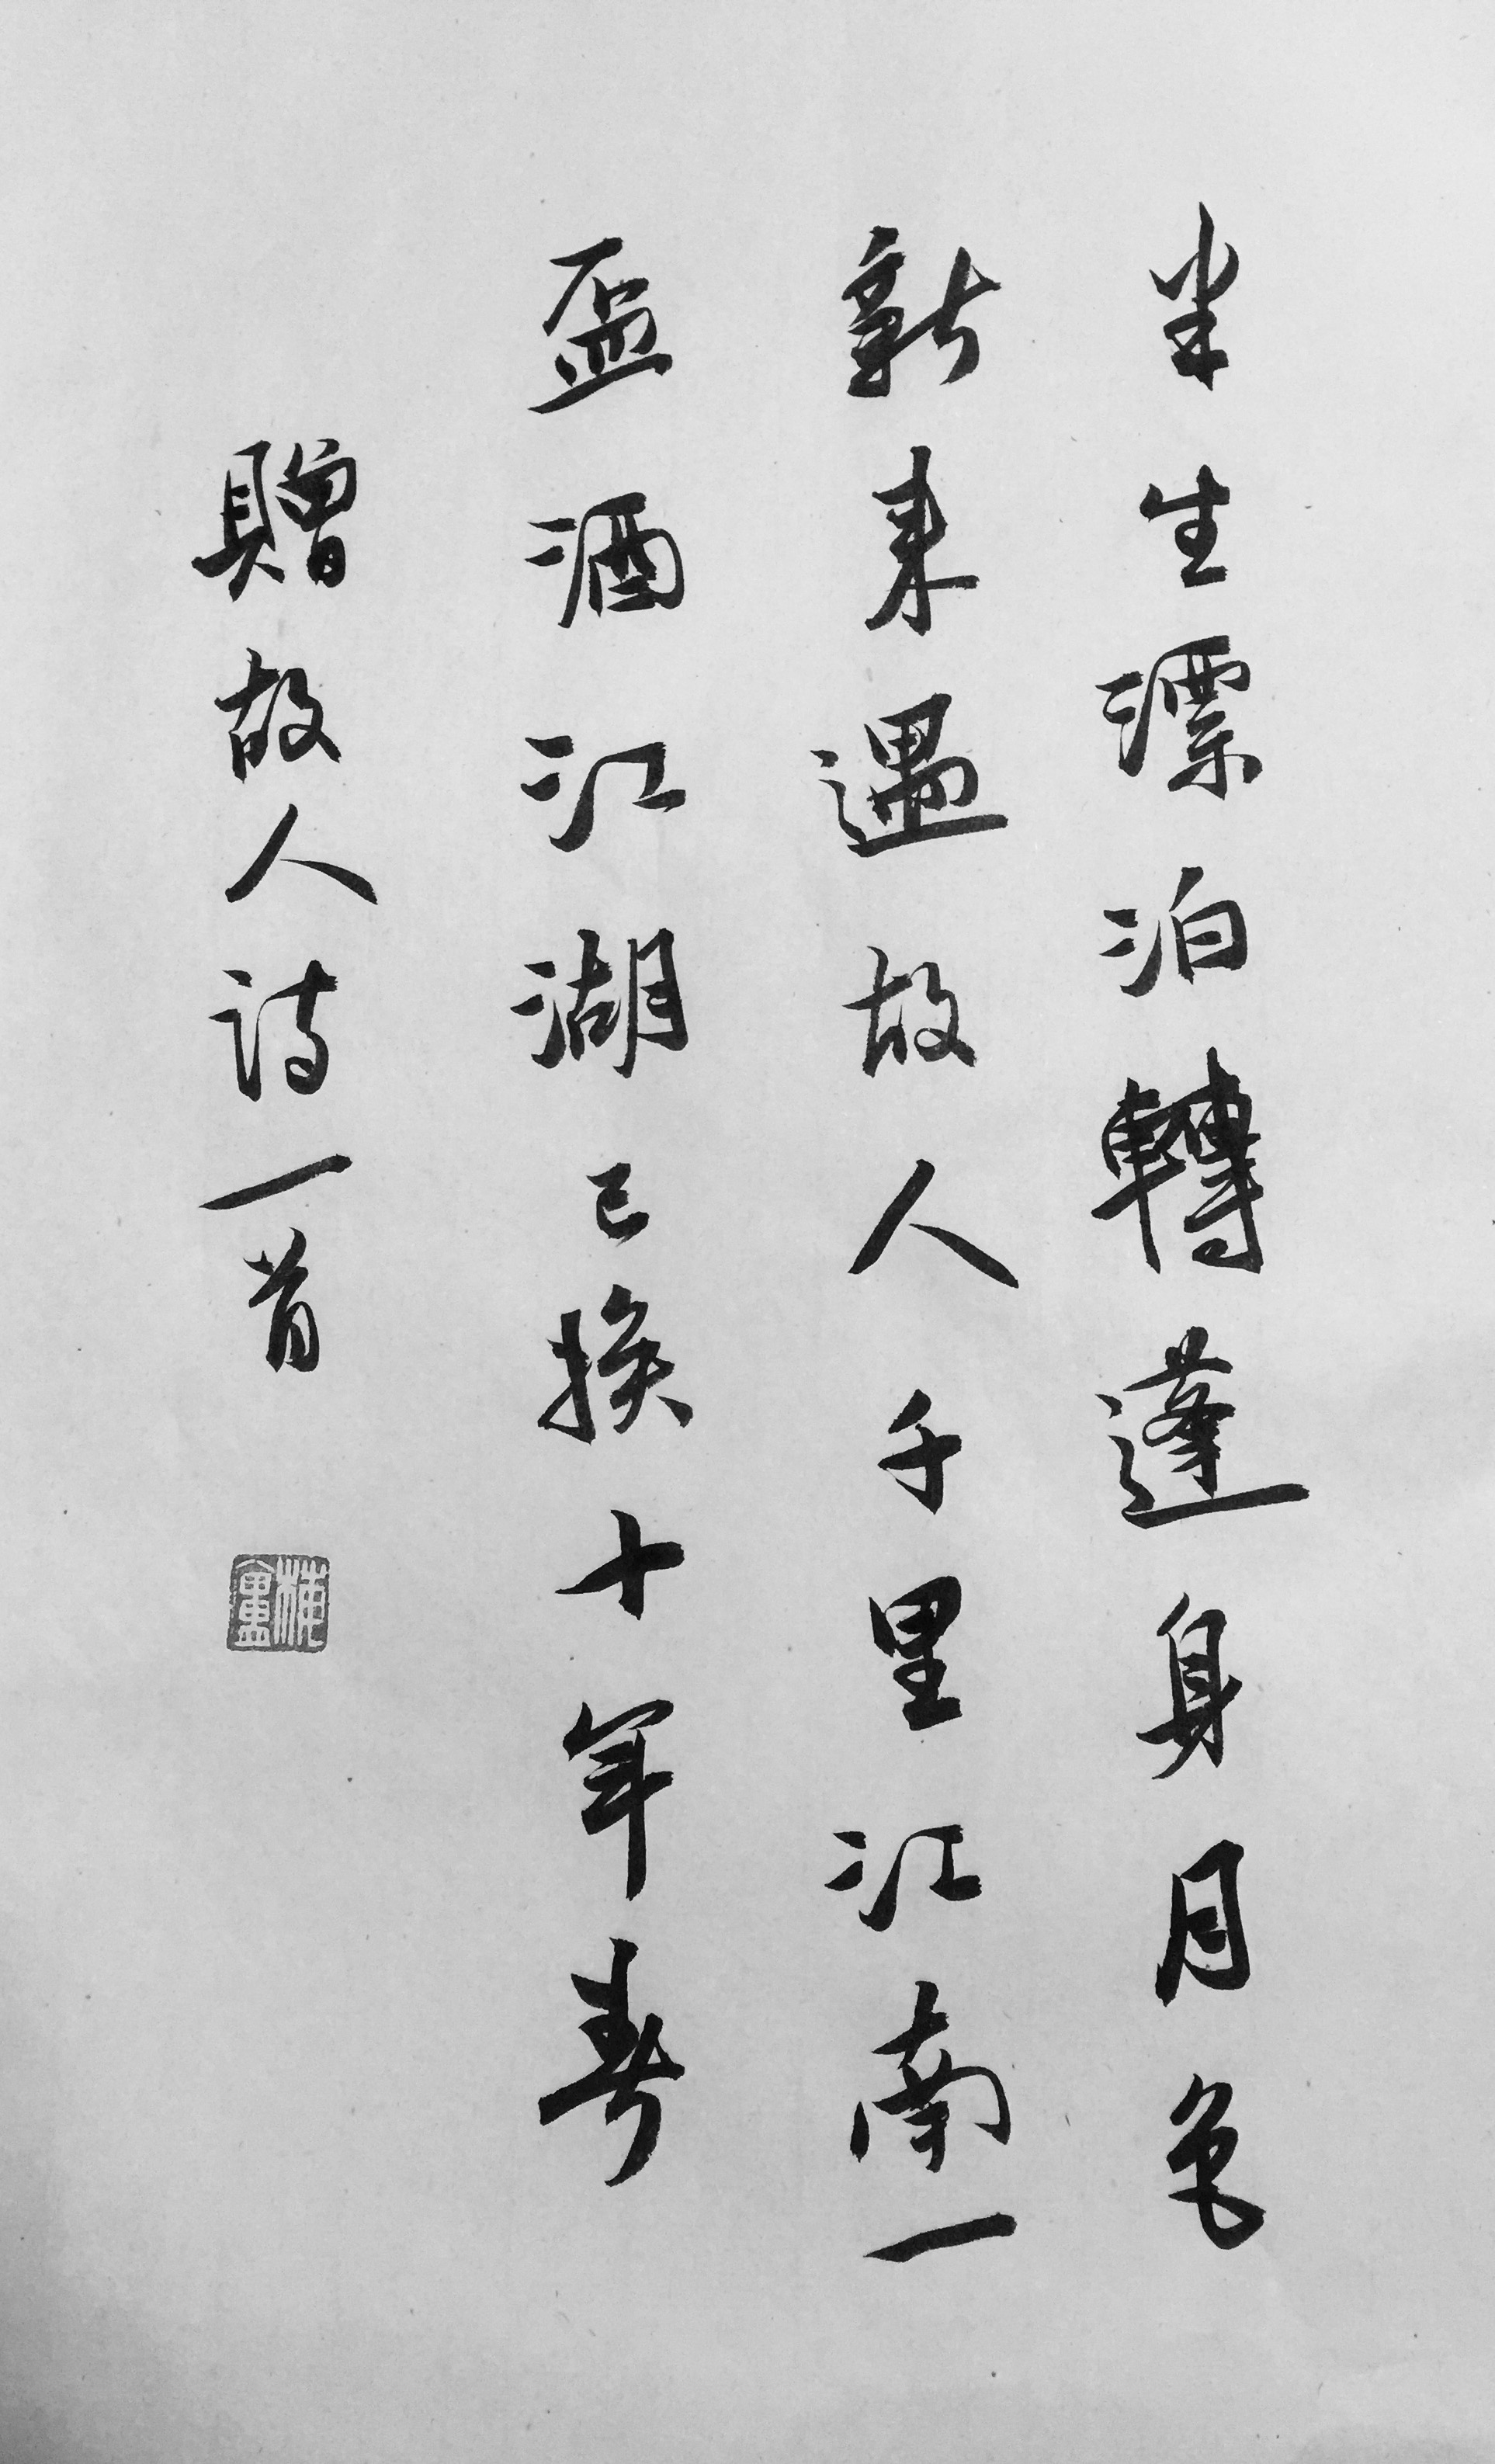 半生漂泊轉蓬身月色
新来遇故人千里江南一
盃酒江湖已換十年春
贈故人诗一首